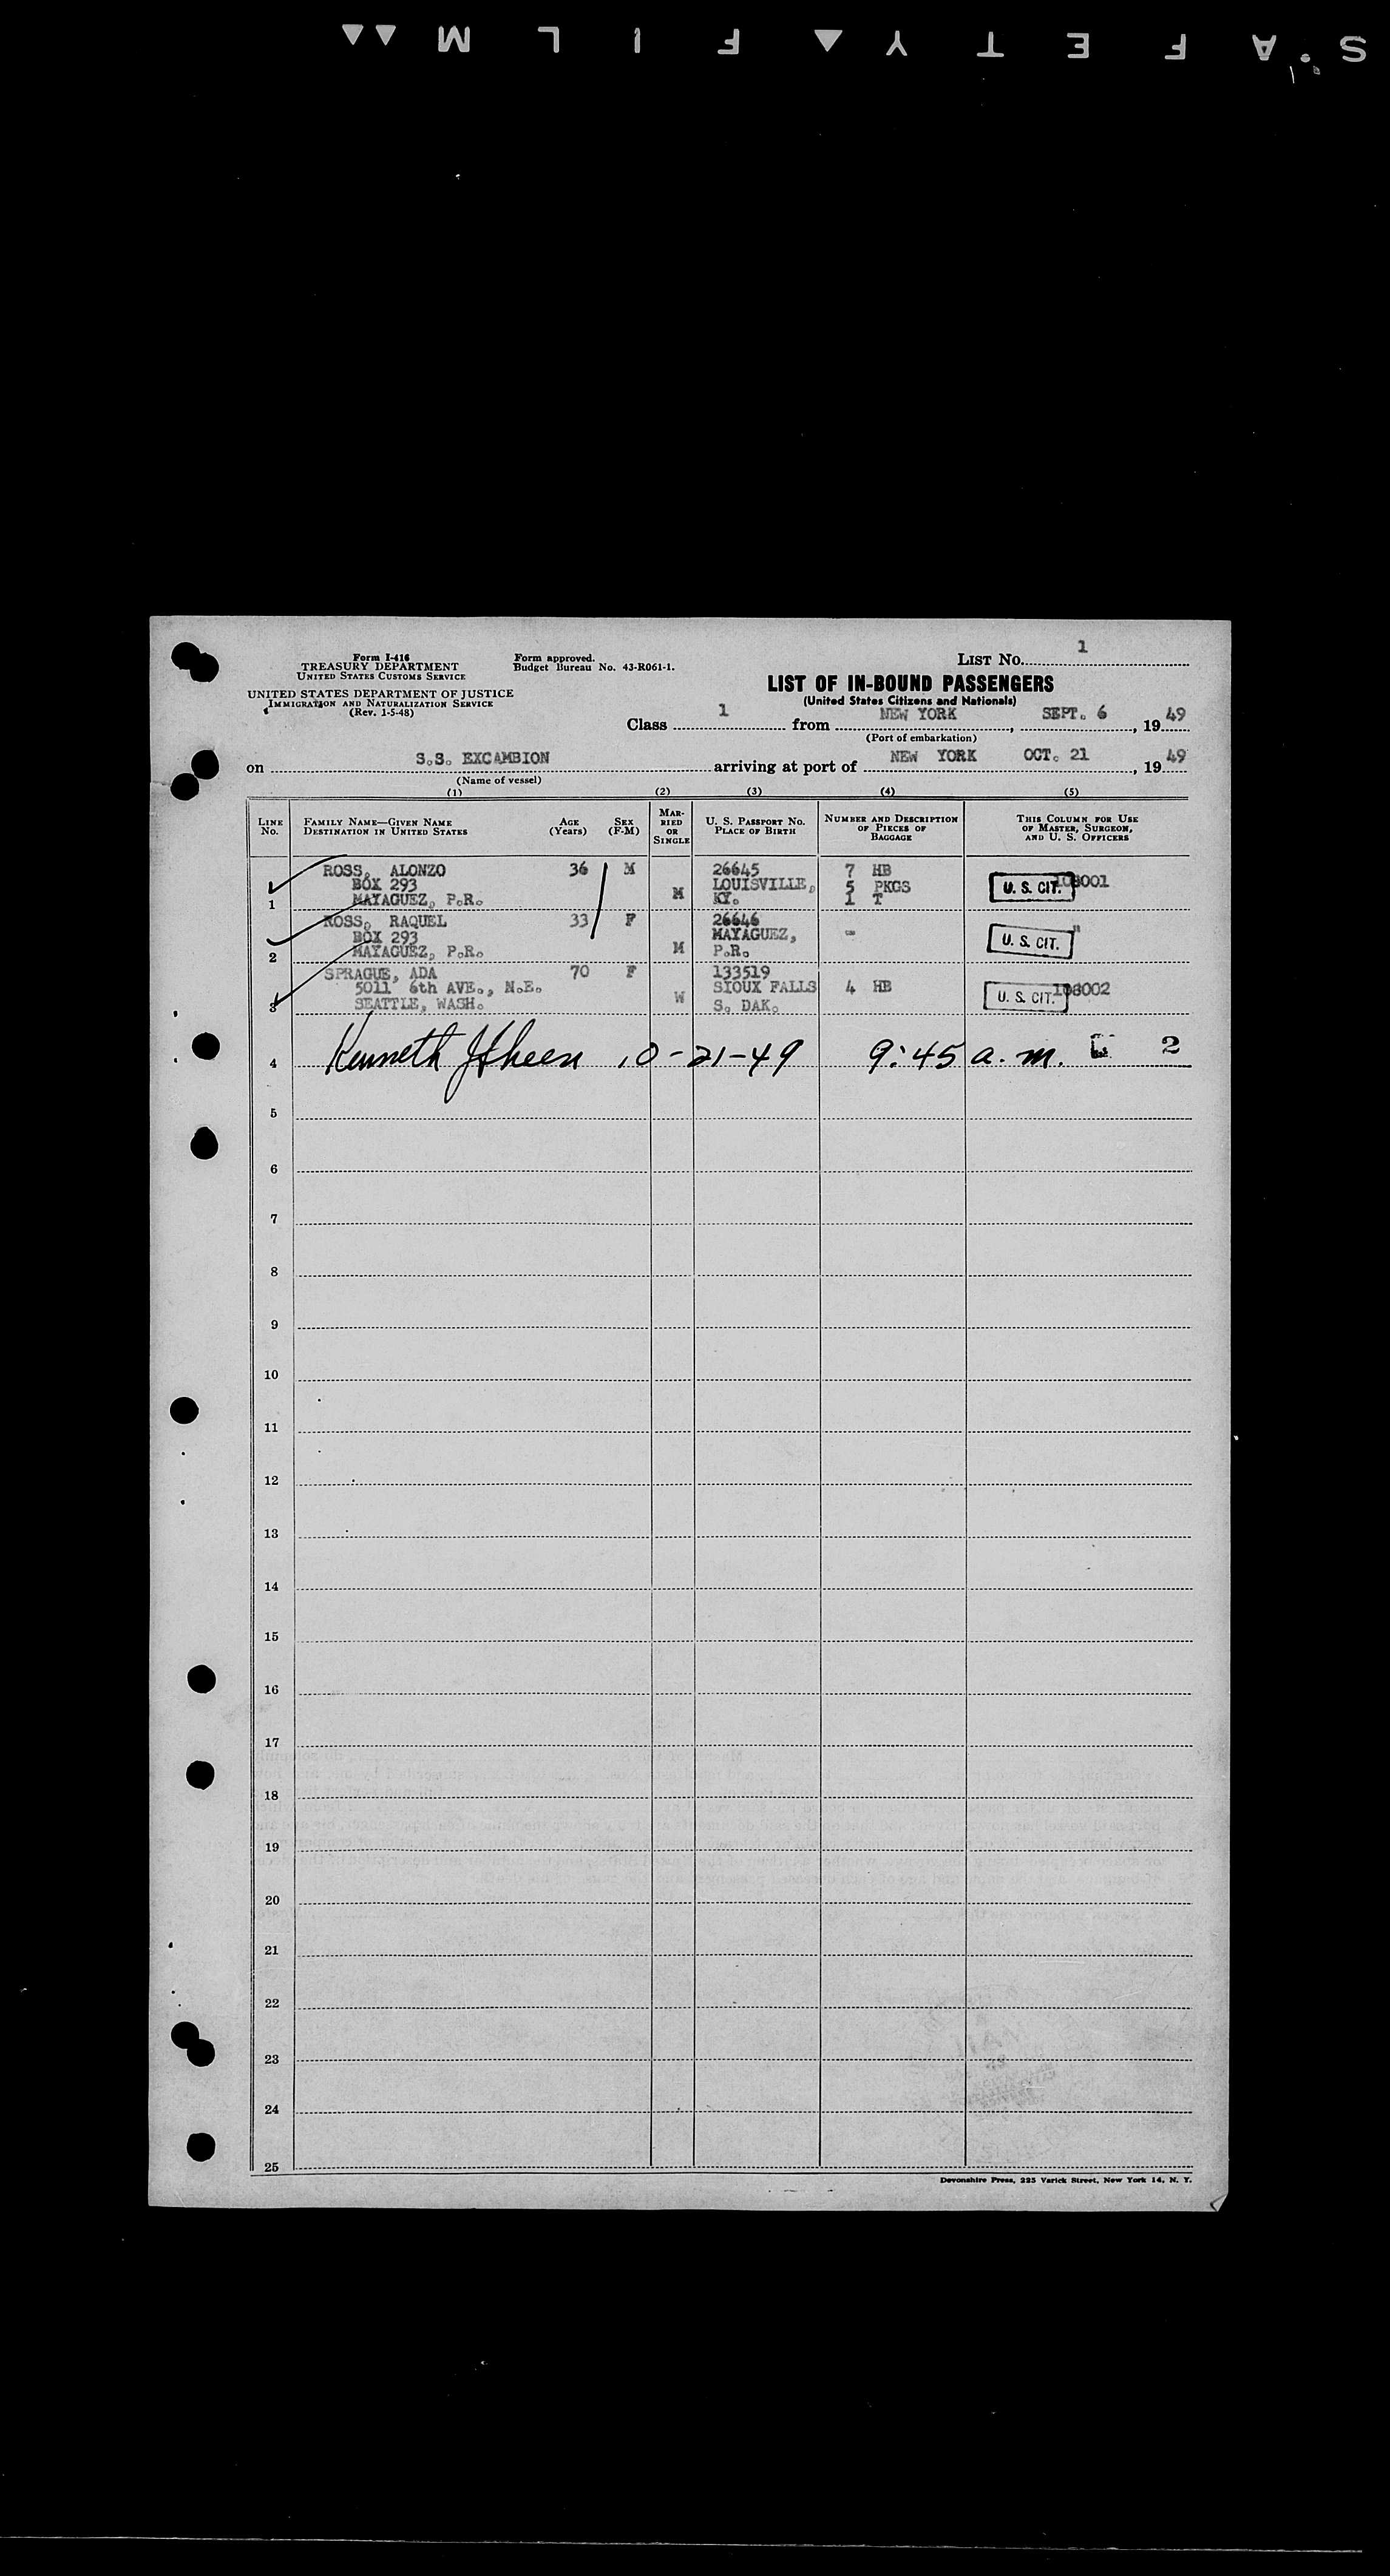 SAFETY▲FILM▲▲
Form I-416
TREASURY DEPARTMENT
UNITED STATES CUSTOMS SERVICE
UNITED STATES DEPARTMENT OF JUSTICE
IMMIGRATION AND NATURALIZATION SERVICE
(Rev. 1-5-48)
Form approved.
Budget Bureau No. 43-R061-1.
LIST NO. 1
LIST OF IN-BOUND PASSENGERS
(United States Citizens and Nationals)
Class 1 from NEW YORK, SEPT. 6, 19 49
(Port of embarkation)
on S.S. EXCAMBION arriving at port of NEW YORK OCT. 21, 19 49
(Name of vessel)
(1) (2) (3) (4) (5)
LINE NO.
FAMILY NAME—GIVEN NAME
DESTINATION IN UNITED STATES
AGE (Years)
SEX (F-M)
MARRIED OR SINGLE
U. S. PASSPORT NO.
PLACE OF BIRTH
NUMBER AND DESCRIPTION OF PIECES OF BAGGAGE
THIS COLUMN FOR USE OF MASTER, SURGEON, AND U. S. OFFICERS
ROSS, ALONZO 36 M 26645 7 HB
BOX 293 LOUISVILLE, 5 PKGS U. S. CIT.
1 MAYAGUEZ, P.R. M KY. 1 T
ROSS, RAQUEL 33 F 26646
BOX 293 MAYAGUEZ, - U. S. CIT. "
2 MAYAGUEZ, P.R. M P.R.
SPRAGUE, ADA 70 F 133519
5011 6th AVE., N.E. SIOUX FALLS 4 HB U. S. CIT.
3 SEATTLE, WASH. W S. DAK.
4 Kenneth 10-21-49 9:45 a.m. 2
5
6
7
8
9
10
11
12
13
14
15
16
17
18
19
20
21
22
23
24
25
Devonshire Press, 225 Varick Street, New York 14, N. Y.